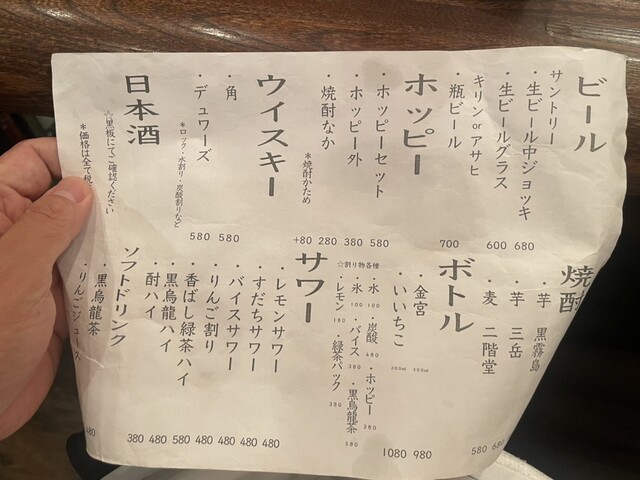 ビール
サントリー
・生ビール中ジョッキ 680
・生ビールグラス 600
キリン or アサヒ
・瓶ビール 700
ホッピー
・ホッピーセット 580
・ホッピー外 380
・焼酎なか 280
*焼酎かため +80
ウイスキー
・角 580
・デュワーズ 580
*ロック・水割り・炭酸割りなど
日本酒
☆黒板にてご確認ください
*価格は全て税
焼酎
・芋 黒霧島
・芋 三岳
・麦 二階堂 580
ボトル
・金宮 980
・いいちこ 1080
☆割り物各種
・水 100 ・炭酸 480 ・ホッピー 380
・氷 100 ・バイス 380 ・黒烏龍茶 380
・レモン 180 ・緑茶パック 580
サワー
・レモンサワー 480
・すだちサワー 480
・バイスサワー 480
・りんご割り 480
・香ばし緑茶ハイ 580
・黒烏龍ハイ 480
・酎ハイ 380
ソフトドリンク
・黒烏龍茶 480
・りんごジュース